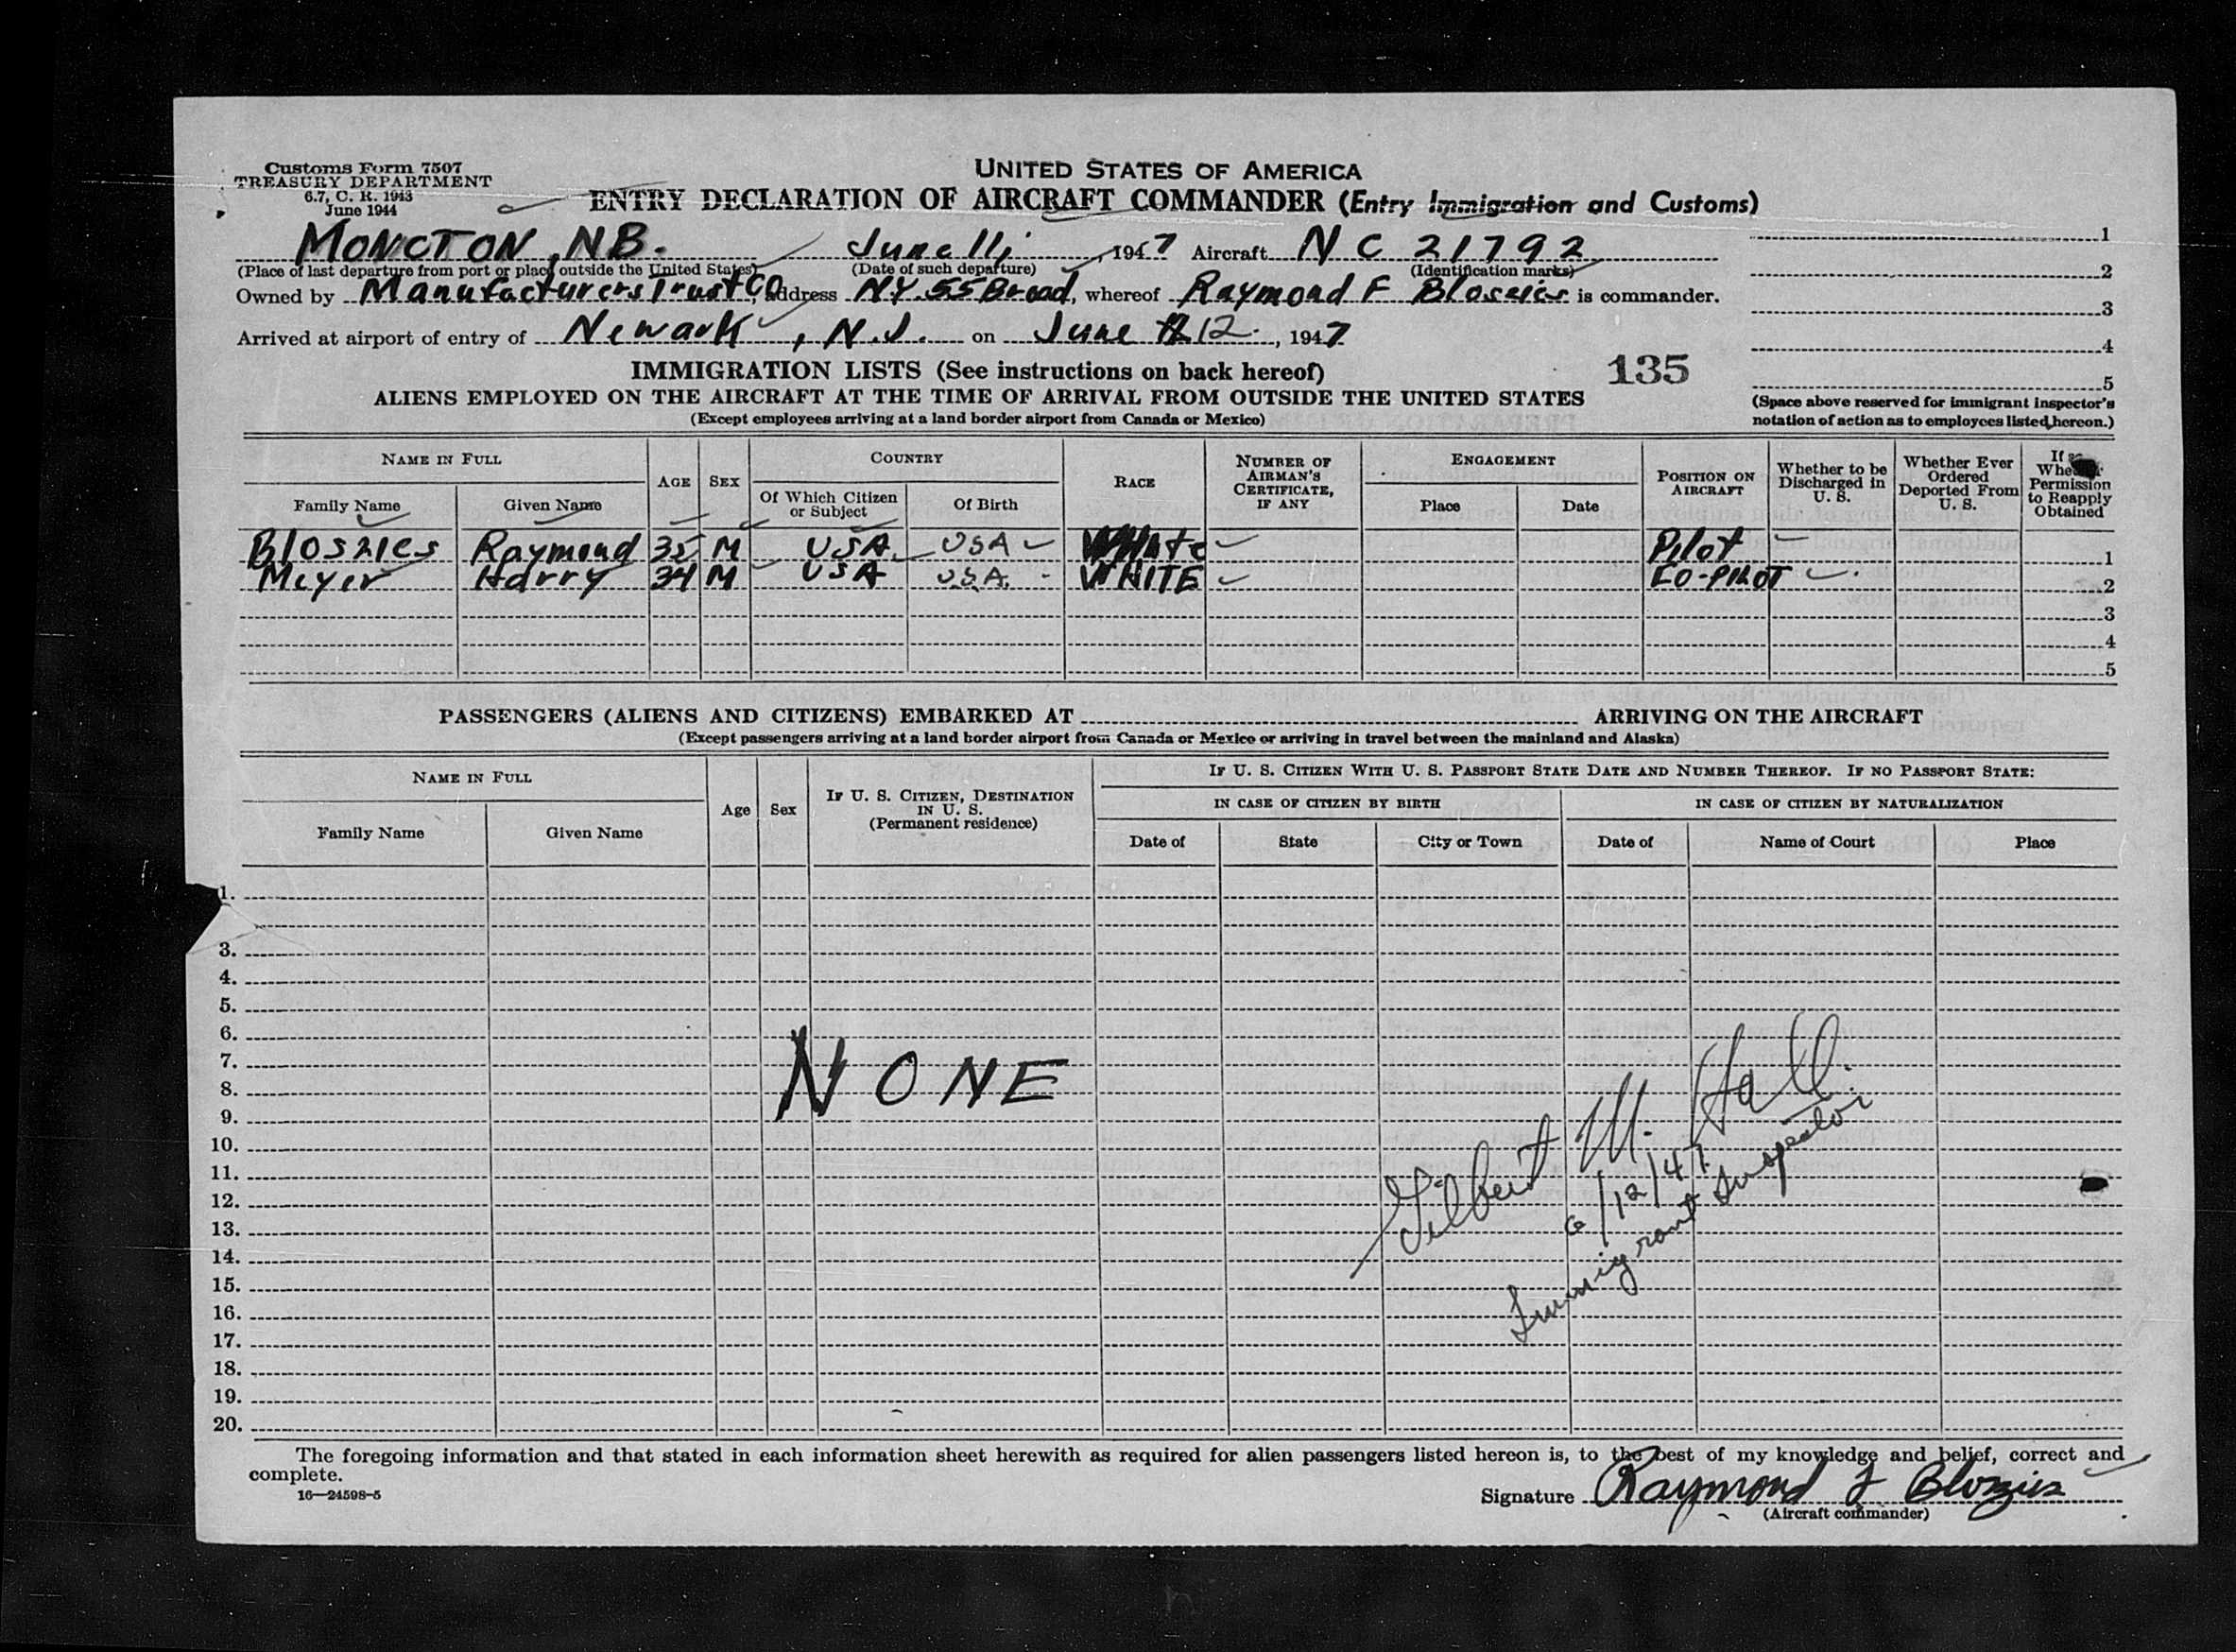 Customs Form 7507
TREASURY DEPARTMENT
6.7, C. R. 1943
June 1944
UNITED STATES OF AMERICA
ENTRY DECLARATION OF AIRCRAFT COMMANDER (Entry Immigration and Customs)
MONCTON, N.B. June 11, 1947 Aircraft NC 21792
(Place of last departure from port or place outside the United States) (Date of such departure) (Identification marks)
Owned by Manufacturers Trust Co, address N.Y. 55 Broad, whereof Raymond F Bloszies is commander.
Arrived at airport of entry of Newark, N.J. on June 12, 1947
1
2
3
4
5
(Space above reserved for immigrant inspector's
notation of action as to employees listed hereon.)
135
IMMIGRATION LISTS (See instructions on back hereof)
ALIENS EMPLOYED ON THE AIRCRAFT AT THE TIME OF ARRIVAL FROM OUTSIDE THE UNITED STATES
(Except employees arriving at a land border airport from Canada or Mexico)
NAME IN FULL AGE SEX COUNTRY RACE NUMBER OF AIRMAN'S CERTIFICATE, IF ANY ENGAGEMENT POSITION ON AIRCRAFT Whether to be Discharged in U. S. Whether Ever Ordered Deported From U. S. If so Whether Permission to Reapply Obtained
Family Name Given Name Of Which Citizen or Subject Of Birth Place Date
Bloszies Raymond 35 M USA USA White Pilot 1
Meyer Harry 34 M USA U.S.A. WHITE CO-PILOT 2
3
4
5
PASSENGERS (ALIENS AND CITIZENS) EMBARKED AT ARRIVING ON THE AIRCRAFT
(Except passengers arriving at a land border airport from Canada or Mexico or arriving in travel between the mainland and Alaska)
NAME IN FULL Age Sex IF U. S. CITIZEN, DESTINATION IN U. S. (Permanent residence) IF U. S. CITIZEN WITH U. S. PASSPORT STATE DATE AND NUMBER THEREOF. IF NO PASSPORT STATE:
IN CASE OF CITIZEN BY BIRTH IN CASE OF CITIZEN BY NATURALIZATION
Family Name Given Name Date of State City or Town Date of Name of Court Place
1.
3.
4.
5.
6.
7.
8.
9.
10.
11.
12.
13.
14.
15.
16.
17.
18.
19.
20.
NONE
Gilbert M. Hall
6/12/47
Immigrant Inspector
The foregoing information and that stated in each information sheet herewith as required for alien passengers listed hereon is, to the best of my knowledge and belief, correct and
complete.
16—24598-5
Signature Raymond F Bloszies
(Aircraft commander)